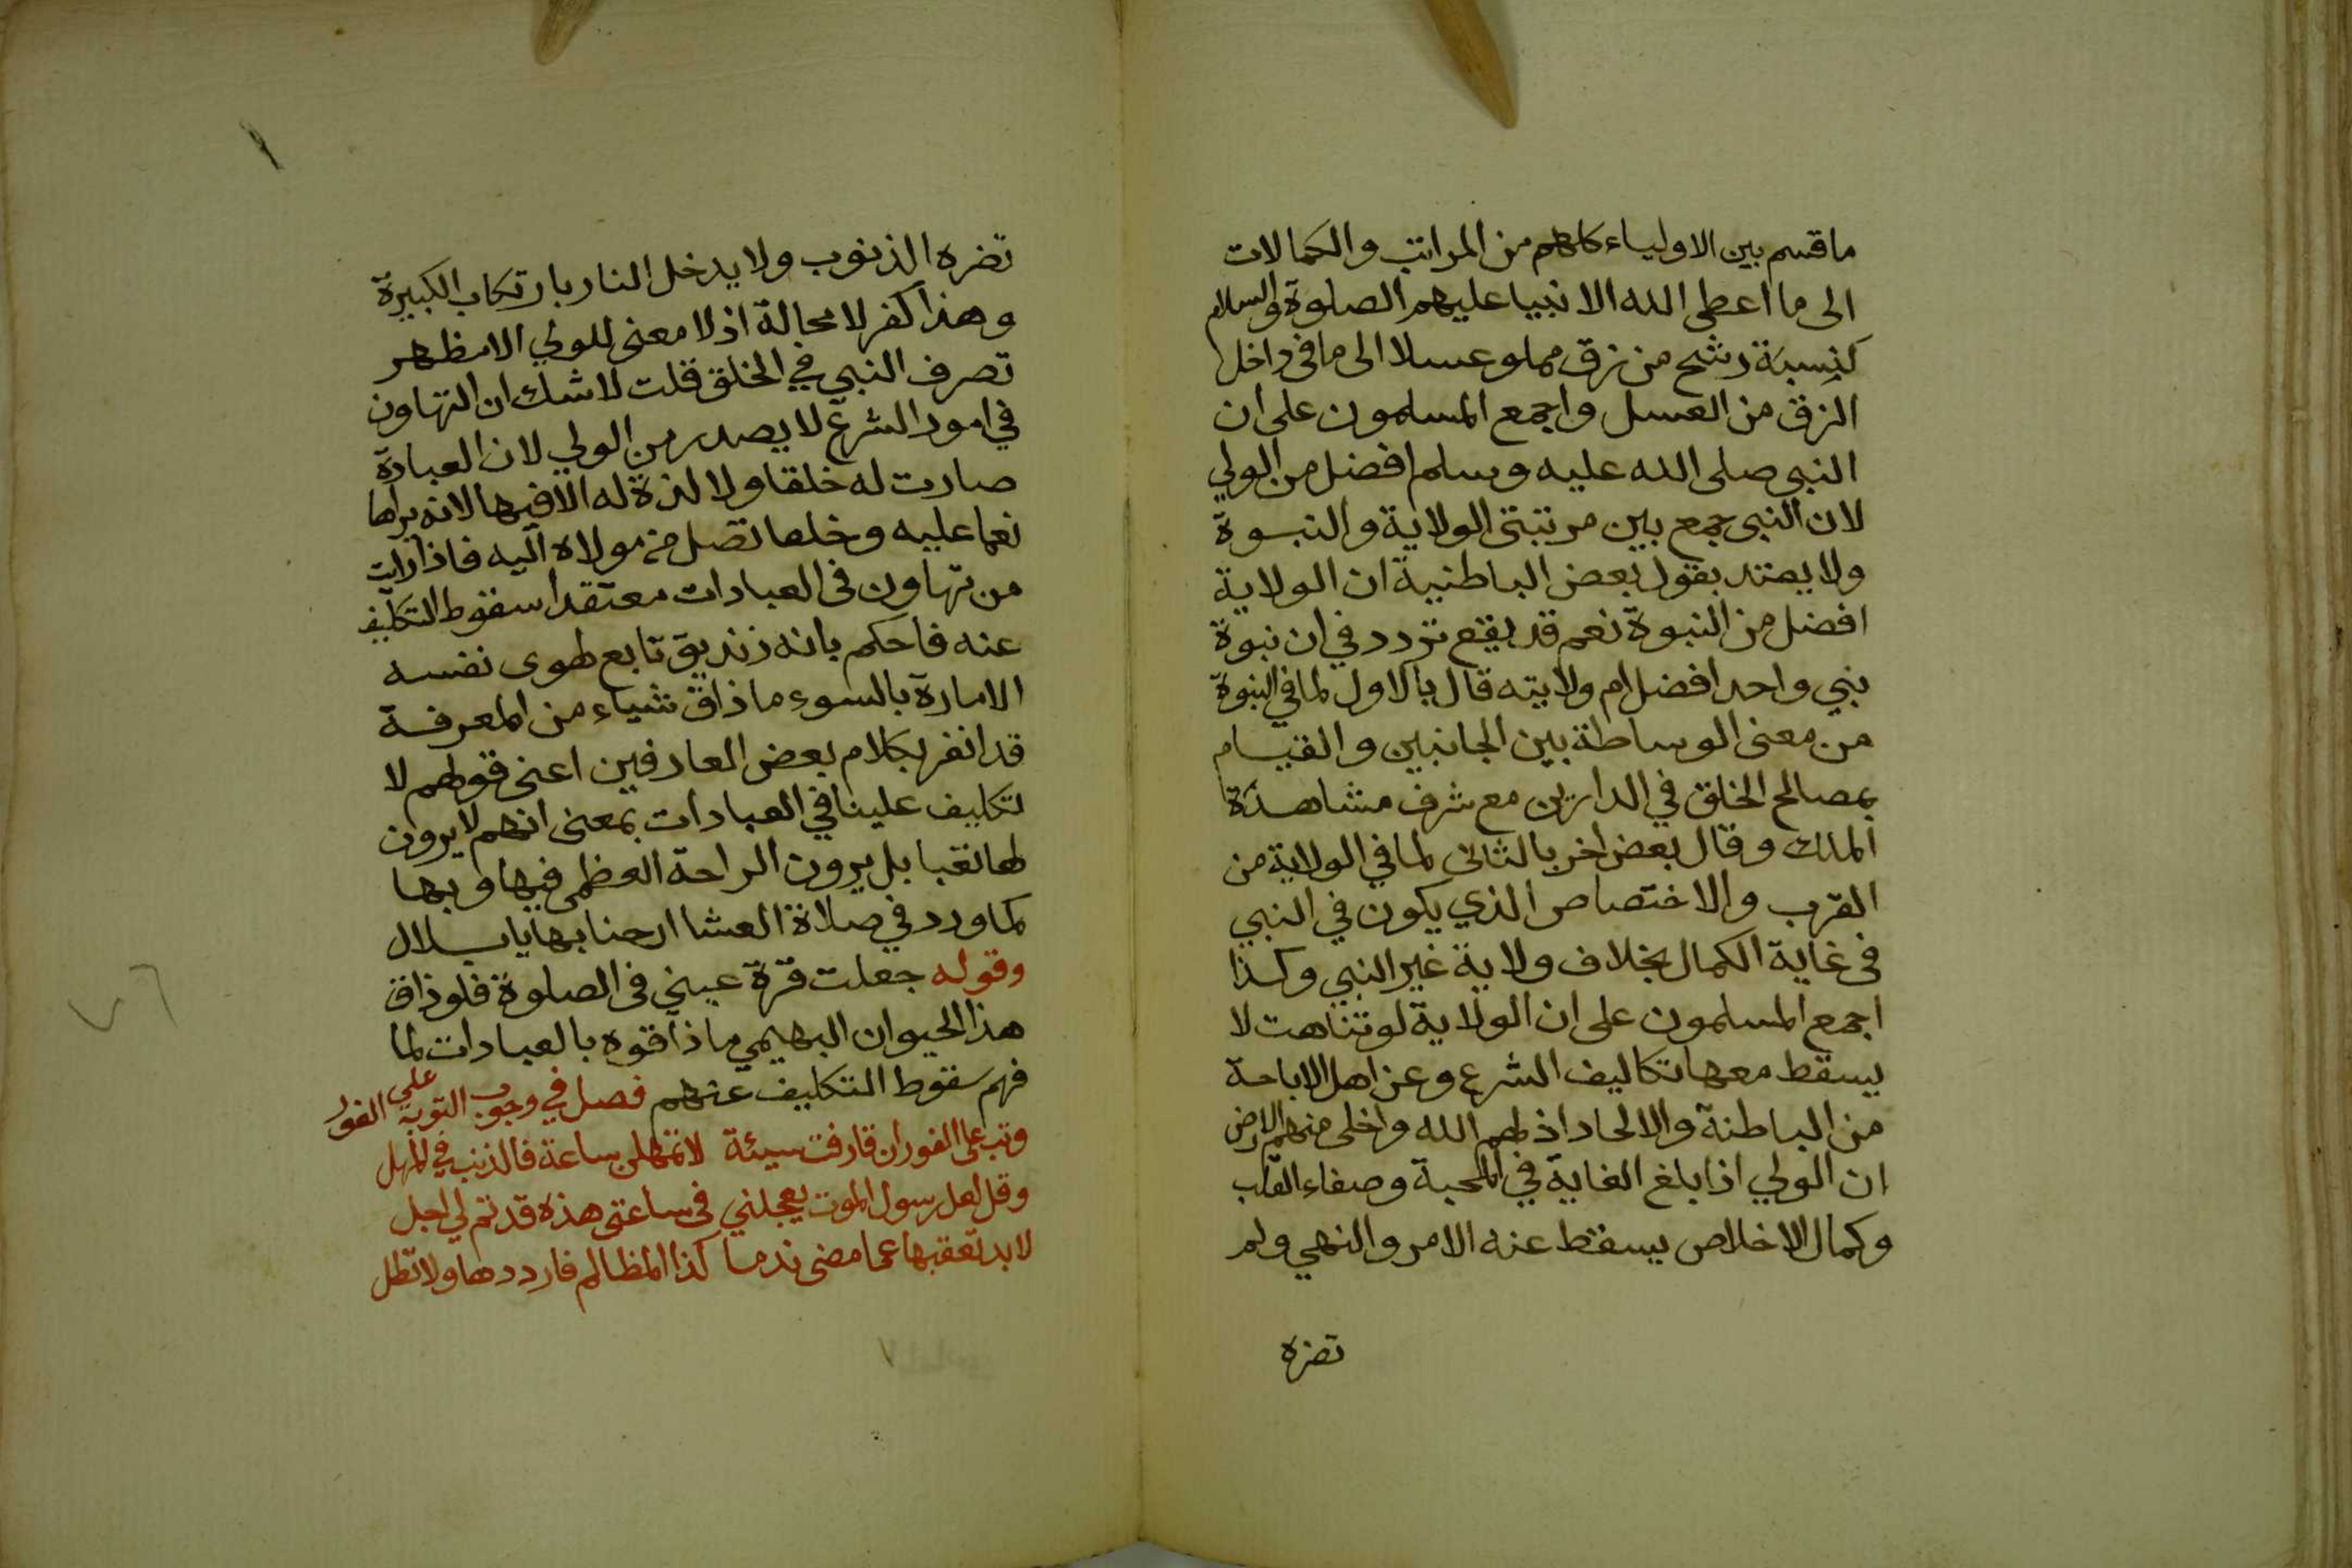 ما قسم بين الاولياء كلهم من المراتب والكمالات
الى ما اعطى الله الانبيا عليهم الصلوة والسلام
كنسبة رشح من زق مملو عسلا الى ما فى داخل
الزق من العسل واجمع المسلمون على ان
النبى صلى الله عليه وسلم افضل من الولي
لان النبى جمع بين مرتبتى الولاية والنبوة
ولا يعتد بقول بعض الباطنية ان الولاية
افضل من النبوة نعم قد يقع تردد في ان نبوة
نبي واحد افضل ام ولايته قال بالاول لما في النبوة
من معنى الوساطة بين الجانبين والقيام
بمصالح الخلق في الدارين مع شرف مشاهدة
الملك وقال بعض اخر بالثانى لما في الولاية من
القرب والاختصاص الذي يكون في النبي
فى غاية الكمال بخلاف ولاية غير النبي وكذا
اجمع المسلمون على ان الولاية لو تناهت لا
يسقط معها تكاليف الشرع وعن اهل الاباحة
من الباطنة والالحاد اذلهم الله واخلى منهم الارض
ان الولي اذا بلغ الغاية في المحبة وصفاء القلب
وكمال الاخلاص يسقط عنه الامر والنهي ولم
تضره
تضره الذنوب ولا يدخل النار بارتكاب الكبيرة
وهذا كفر لا محالة اذ لا معنى للولي الا مظهر
تصرف النبي في الخلق قلت لا شك ان التهاون
في امور الشرع لا يصدر من الولي لان العبادة
صارت له خلقا ولا لذة له الا فيها لانه يراها
نعما عليه وخلعا تصل من مولاه اليه فاذا رايت
من تهاون فى العبادات معتقدا سقوط التكليف
عنه فاحكم بانه زنديق تابع لهوى نفسه
الامارة بالسوء ما ذاق شياء من المعرفة
قد انغر بكلام بعض العارفين اعنى قولهم لا
تكليف علينا في العبادات بمعنى انهم لا يرون
لها تعبا بل يرون الراحة العظمى فيها وبها
كما ورد في صلاة العشا ارحنا بها يا بلال
وقوله جعلت قرة عيني فى الصلوة فلو ذاق
هذا الحيوان البهيمي ما ذاقوه بالعبادات لما
فهم سقوط التكليف عنهم فصل في وجوب التوبة على الفور
وتب على الفور ان قارفت سيئة لا تمهلن ساعة فالذنب في المهل
وقل لعل رسول الموت يعجلني فى ساعتى هذه قد تم لي اجل
لا بد تعقبها عما مضى ندما كذا المظالم فارددها ولا تطل